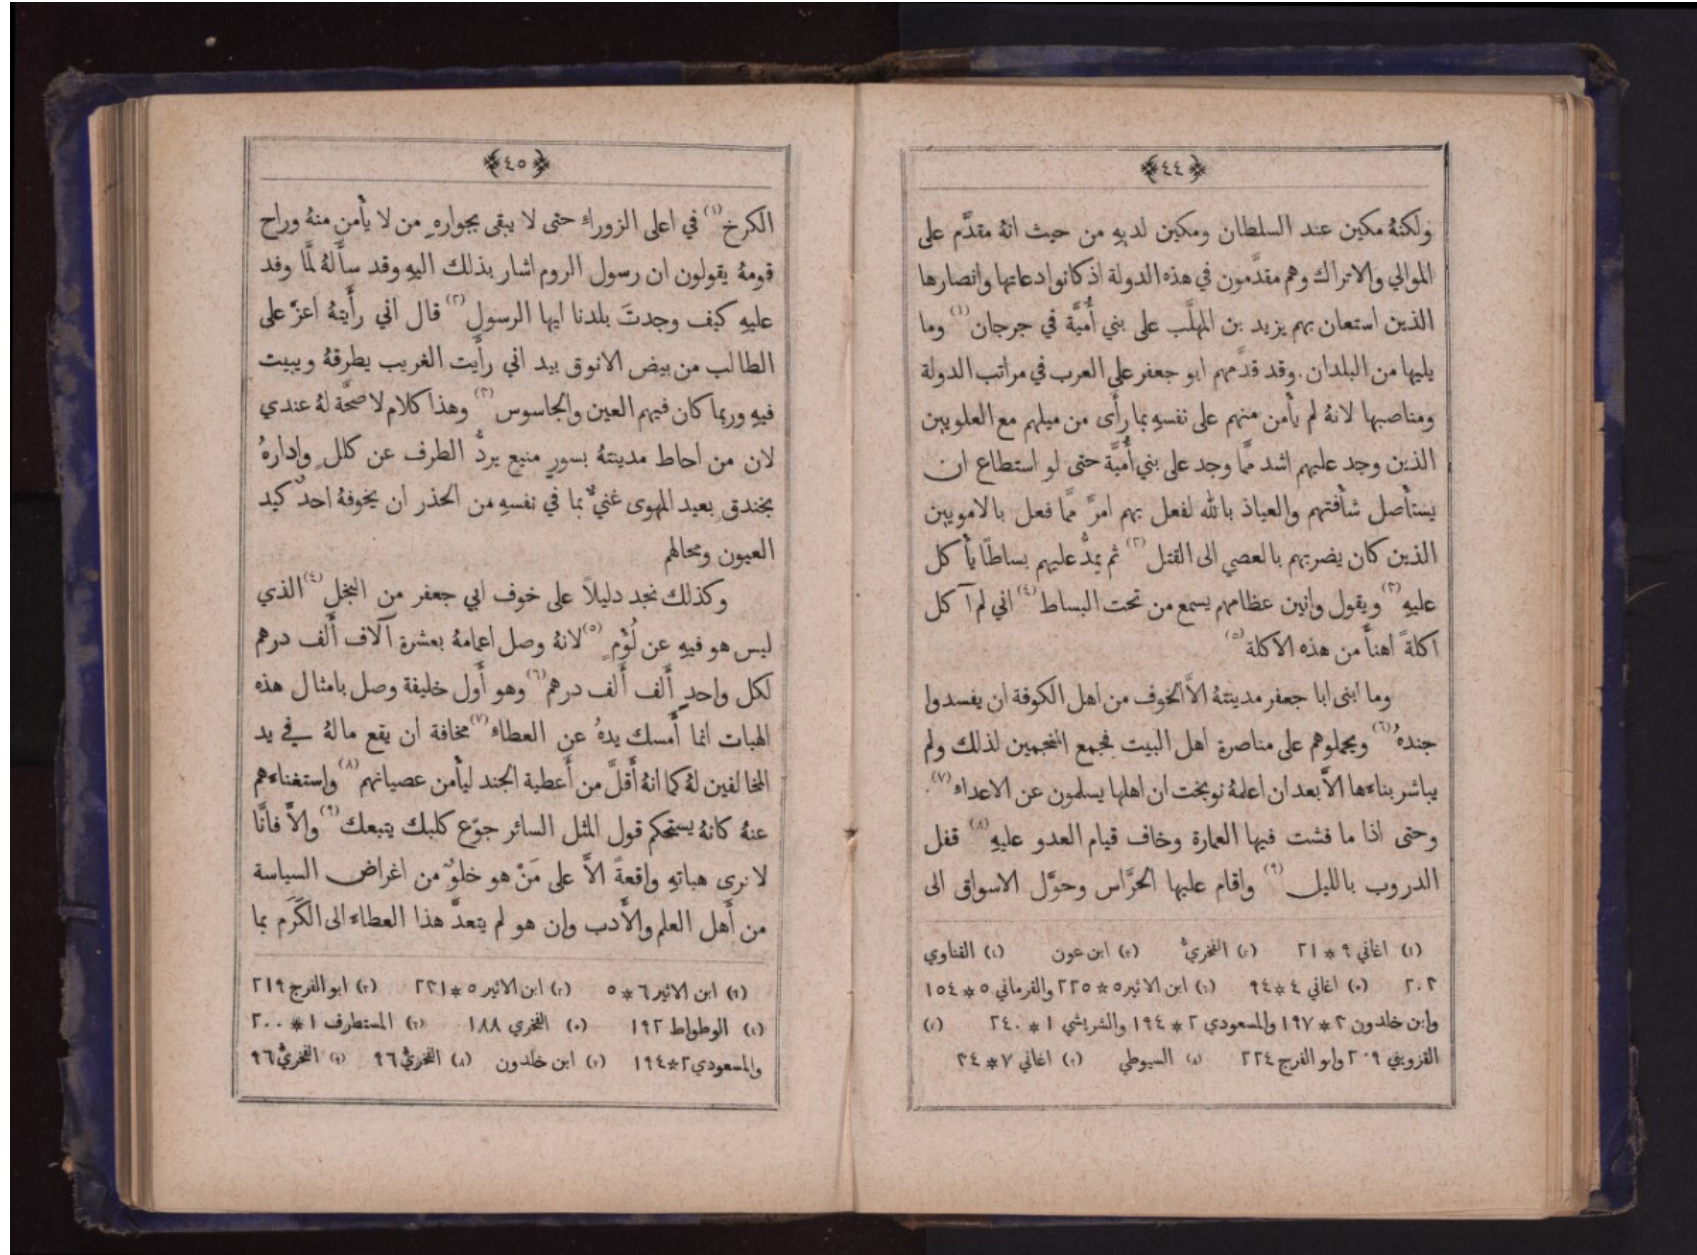 ﴿٤٤﴾
ولكنهُ مكين عند السلطان ومكين لديهِ من حيث انهُ مقدَّم على
الموالي والاتراك وهم مقدَّمون في هذه الدولة اذ كانوا دعاتها وانصارها
الذين استعان بهم يزيد بن المهلَّب على بني أُميَّة في جرجان (١) وما
يليها من البلدان. وقد قدَّمهم ابو جعفر على العرب في مراتب الدولة
ومناصبها لانهُ لم يأمن منهم على نفسهِ بما رأَى من ميلهم مع العلويين
الذين وجد عليهم اشد ممَّا وجد على بني أُميَّة حتى لو استطاع ان
يستأصل شأفتهم والعياذ بالله لفعل بهم امرَّ ممَّا فعل بالامويين
الذين كان يضربهم بالعصي الى القتل (٢) ثم يمدُّ عليهم بساطًا يأكل
عليهِ (٣) ويقول وانين عظامهم يسمع من تحت البساط (٤) اني لم آكل
اكلةً اهنأَ من هذه الاكلة (٥)
وما ابنى ابا جعفر مدينتهُ الاَّ الخوف من اهل الكوفة ان يفسدوا
جندهُ (٦) ويحملوهم على مناصرة اهل البيت فجمع المنجمين لذلك ولم
يباشر بناءها الاَّ بعد ان اعلمهُ نوبخت ان اهلها يسلمون عن الاعداء (٧).
وحتى اذا ما فشت فيها العمارة وخاف قيام العدو عليهِ (٨) قفل
الدروب بالليل (٩) واقام عليها الحرَّاس وحوَّل الاسواق الى
(١) اغاني ٩ * ٢١ (٢) الفخريُّ (٣) ابن عون (٤) الفتاوي
٢٠٢ (٥) اغاني ٤ * ٩٤ (٦) ابن الاثير ٥ * ٢٢٥ والقرماني ٥ * ١٥٤
وابن خلدون ٣ * ١٩٧ والمسعودي ٢ * ١٩٤ والشريشي ١ * ٢٤٠ (٧)
القزويني ٢٠٩ وابو الفرج ٢٢٤ (٨) السيوطي (٩) اغاني ٧ * ٣٤
﴿٤٥﴾
الكرخ (١) في اعلى الزوراء حتى لا يبقى بجوارهِ من لا يأمن منهُ وراح
قومهُ يقولون ان رسول الروم اشار بذلك اليهِ وقد سأَلهُ لمَّا وفد
عليهِ كيف وجدتَ بلدنا ايها الرسول (٢) قال اني رأَيتهُ اعزّ على
الطالب من بيض الانوق بيد اني رأَيت الغريب يطرقهُ ويبيت
فيهِ وربما كان فيهم العين والجاسوس (٣) وهذا كلام لا صحَّة لهُ عندي
لان من احاط مدينتهُ بسورٍ منيع يردُّ الطرف عن كللٍ وادارهُ
بخندقٍ بعيد المهوى غنيٌّ بما في نفسهِ من الحذر ان يخوفهُ احدٌ كيد
العيون ومحالهم
وكذلك نجد دليلاً على خوف ابي جعفر من البخل (٤) الذي
ليس هو فيهِ عن لُؤْمٍ (٥) لانهُ وصل اعمامهُ بعشرة آلاف أَلف درهم
لكل واحدٍ أَلف أَلف درهم (٦) وهو أَول خليفة وصل بامثال هذه
الهبات انما أَمسك يدهُ عن العطاء (٧) مخافة ان يقع مالهُ في يد
المخالفين لهُ كما انهُ أَقلَّ من أَعطية الجند ليأمن عصيانهم (٨) واستغناءهم
عنهُ كانهُ يستحكم قول المثل السائر جوّع كلبك يتبعك (٩) والاَّ فانَّا
لا نرى هباتهِ واقعةً الاَّ على مَنْ هو خلوٌ من اغراض السياسة
من أَهل العلم والأَدب وان هو لم يتعدَّ هذا العطاء الى الكَرَم بما
(١) ابن الاثير ٦ * ٥ (٢) ابن الاثير ٥ * ٢٣١ (٣) ابو الفرج ٢١٩
(٤) الوطواط ١٩٢ (٥) الفخري ١٨٨ (٦) المستطرف ١ * ٢٠٠
والمسعودي ٢ * ١٩٤ (٧) ابن خلدون (٨) الفخريُّ ٩٦ (٩) الفخريُّ ٩٦